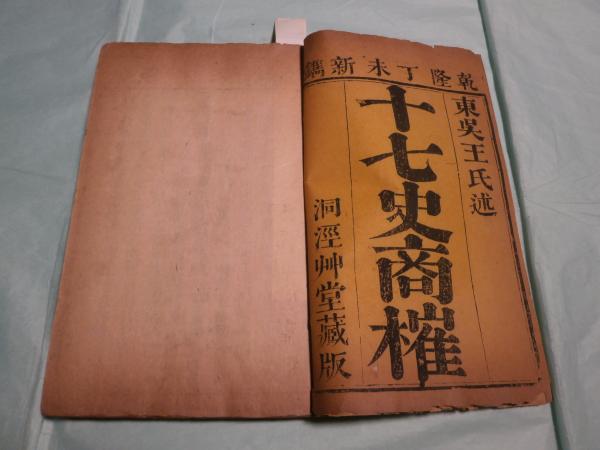 乾隆丁未新鐫
東吳王氏述
十七史商榷
洞涇艸堂藏版